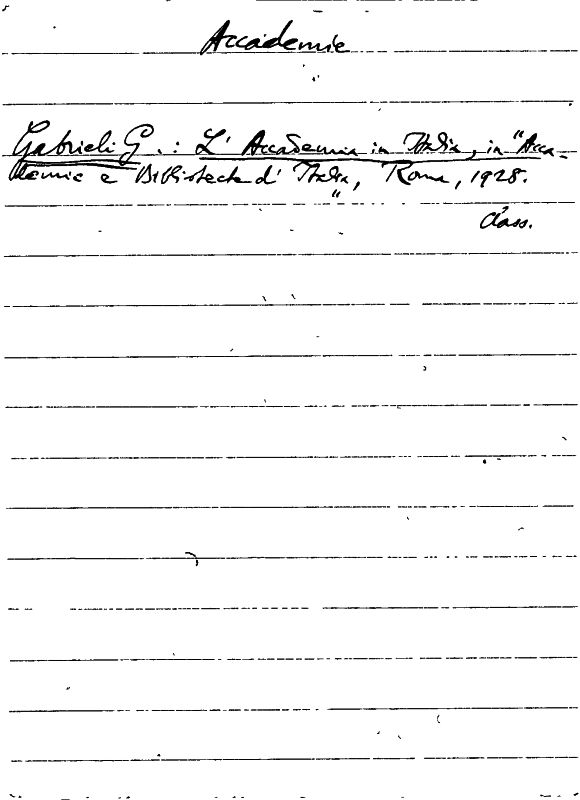 Accademie
Gabrieli G.: L' Accademia in Italia, in "Acca-
demie e Biblioteche d' Italia", Roma, 1928.
Class.